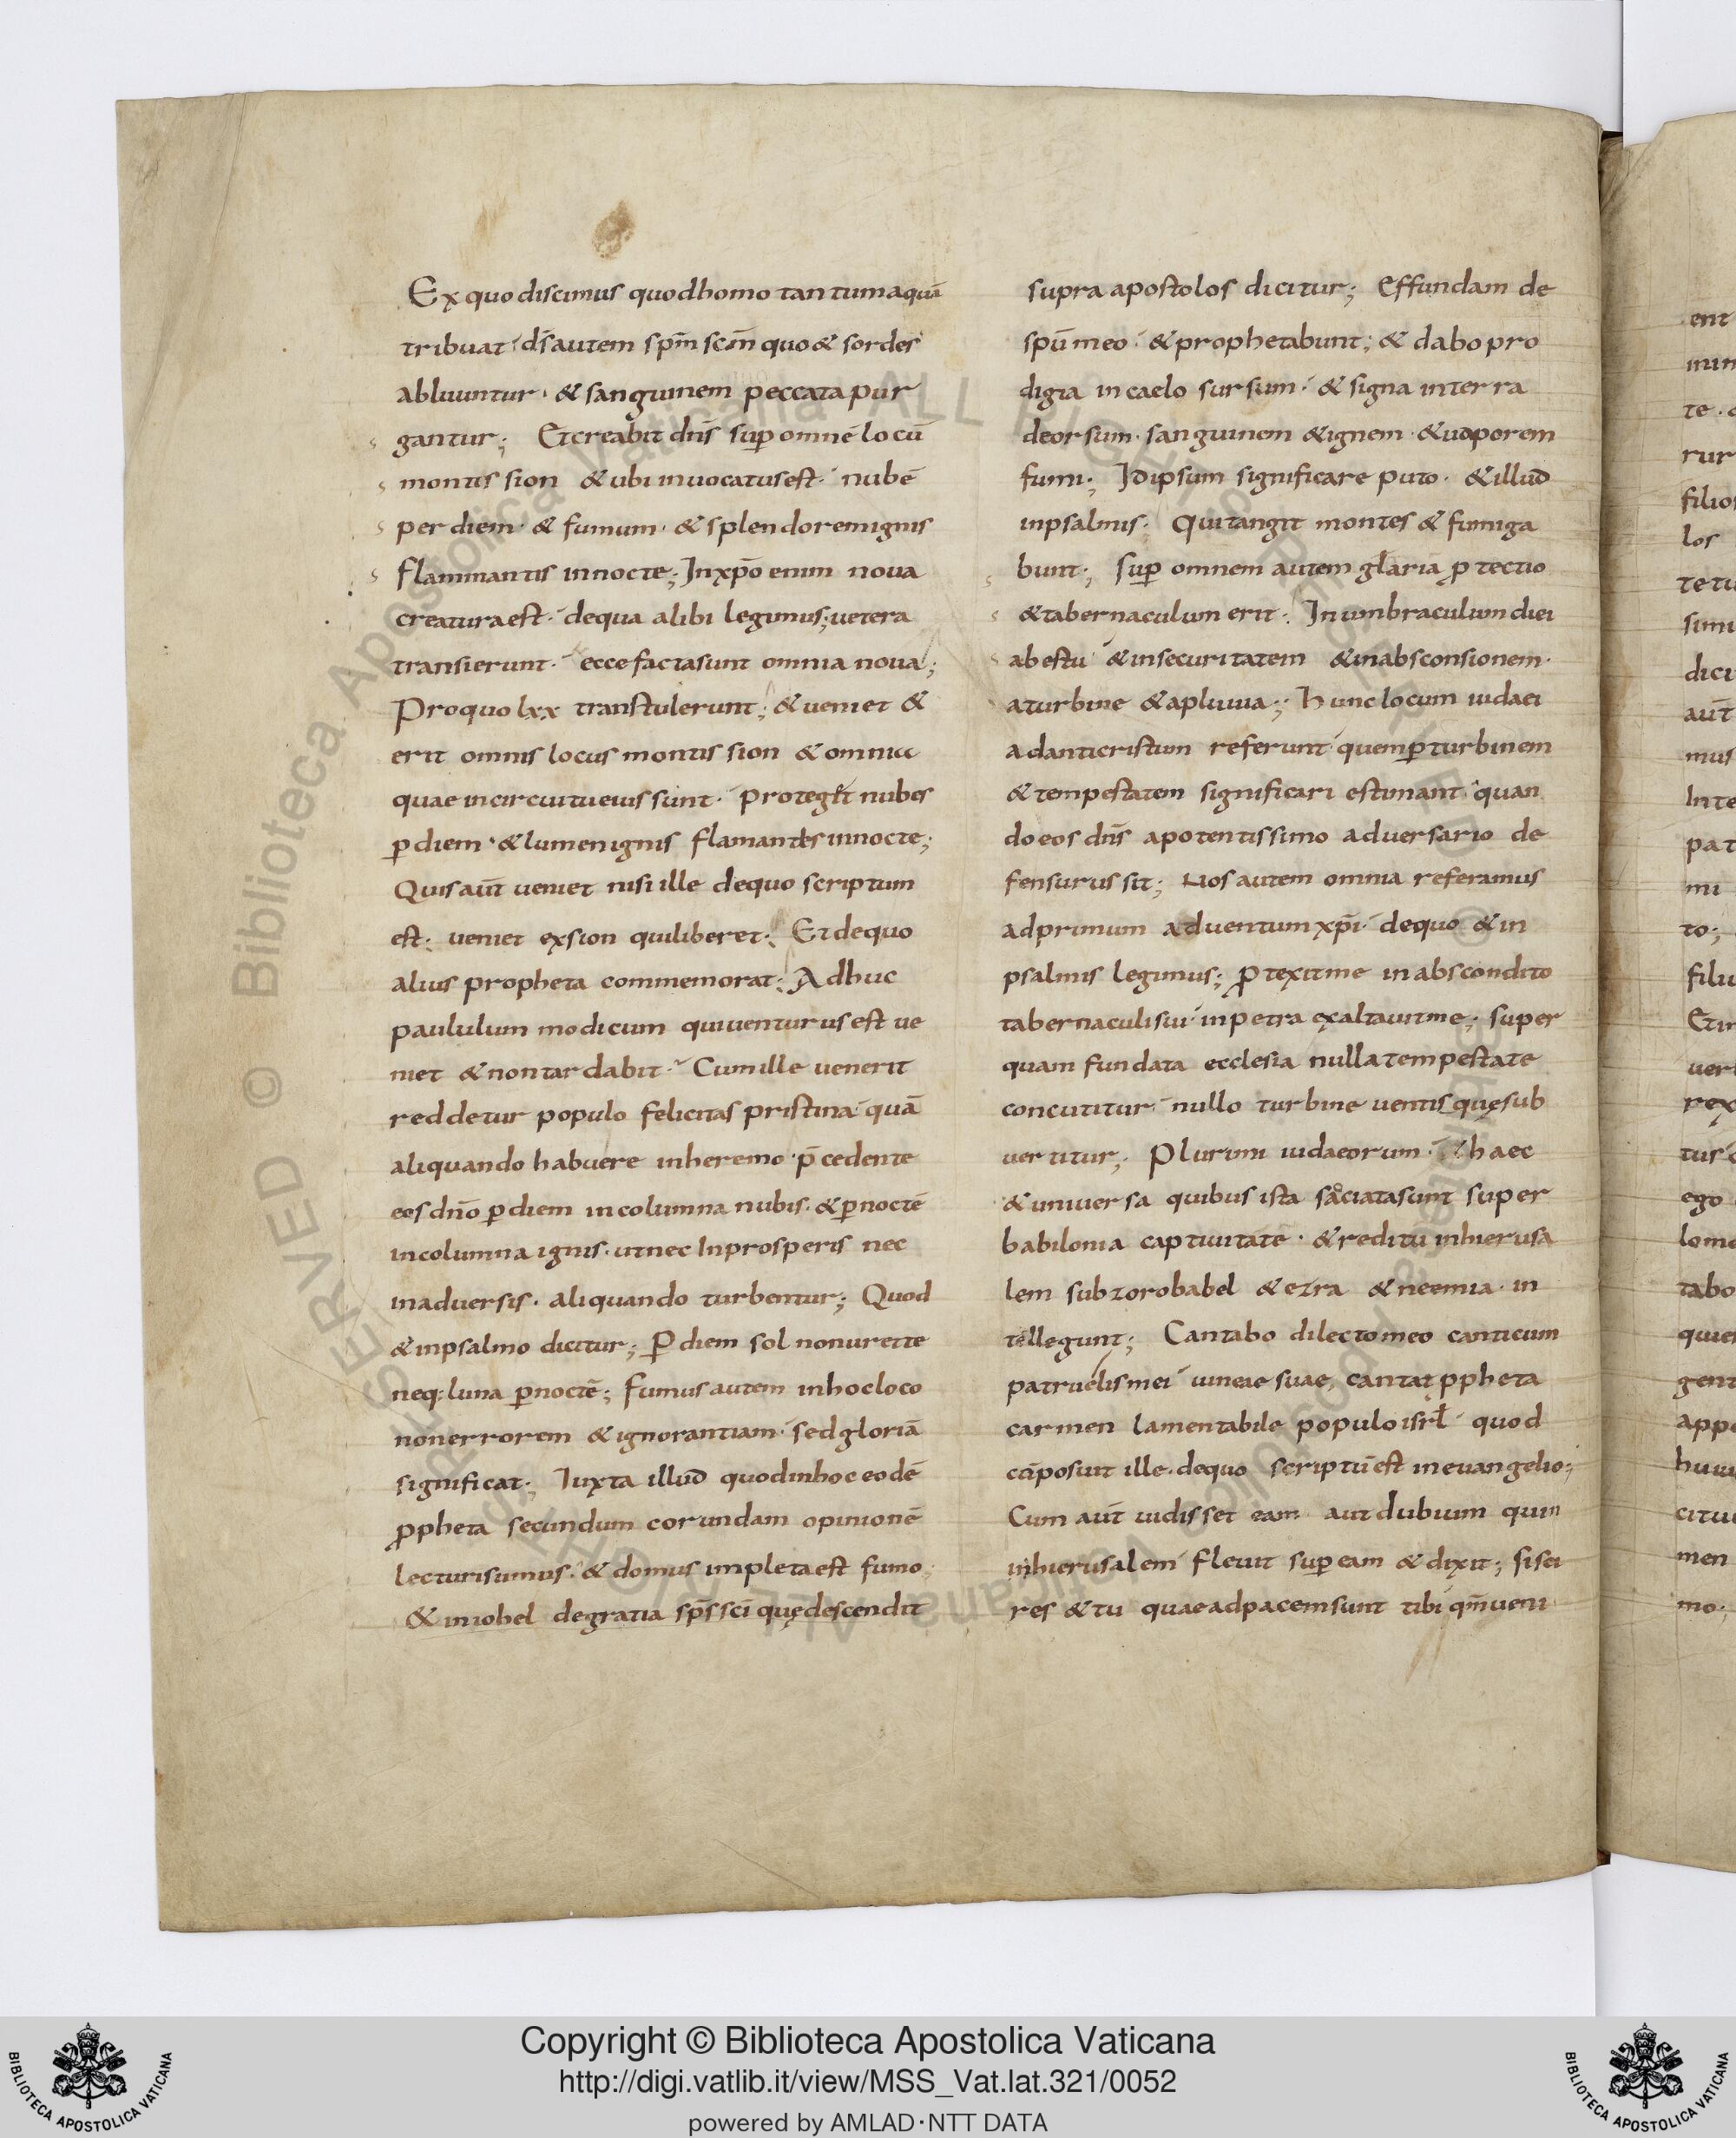 Ex quo discimus quod homo tantum aquā
tribuat· ds̄ autem spm̄ scm̄ quo & sordes
abluuntur· & sanguinem peccata pur
gantur; Et creabit dn̄s sup omnē locū
montis sion & ubi inuocatus est· nubē
per diem· & fumum· & splendorem ignis
flammantis in nocte; In xp̄o enim noua
creatura est· de qua alibi legimus; uetera
transierunt· ecce facta sunt omnia noua;
Pro quo lxx transtulerunt; & ueniet &
erit omnis locus montis sion & omnia
quae in circuitu eius sunt· proteg& nubes
p diem· & lumen ignis flamantis in nocte;
Quis aut̄ ueniet nisi ille de quo scriptum
est; ueniet ex sion qui liberet; Et de quo
alius propheta commemorat; Adhuc
paululum modicum qui uenturus est ue
niet & non tardabit· Cum ille uenerit
reddetur populo felicitas pristina· quā
aliquando habuere in heremo· p̄cedente
eos dn̄o p diem in columna nubis· & p noctē
in columna ignis· ut nec In prosperis nec
in aduersis· aliquando turbentur; Quod
& in psalmo dicitur; P diem sol non uret te
neq; luna p noctē; fumus autem in hoc loco
non errorem & ignorantiam· sed gloriā
significat; Iuxta illud quod in hoc eodē
ppheta secundum corundam opinionē
lecturi sumus· & domus impleta est fumo;
& in iohel de gratia sp̄s sc̄i quę descendit
supra apostolos dicitur; Effundam de
spū meo· & prophetabunt; & dabo pro
digia in caelo sursum· & signa in terra
deorsum· sanguinem & ignem· & uaporem
fumi; Id ipsum significare puto· & illud
in psalmis· Qui tangit montes & fumiga
bunt; Sup omnem autem glariā p tectio
& tabernaculum erit· In umbraculum diei
ab estu· & in securitatem & in absconsionem·
a turbine & a pluuia; Hunc locum iudaei
ad anticristum referunt· quem p turbinem
& tempestatem significari estimant· quan
do eos dn̄s a potentissimo aduersario de
fensurus sit; Nos autem omnia referamus
ad primum aduentum xp̄i· de quo & in
psalmis legimus; p texit me in abscondito
tabernaculi sui· in petra exaltauit me; super
quam fundata ecclesia nulla tempestate
concutitur· nullo turbine uentisquę sub
uertitur; Plurimi iudaeorum· haec
& uniuersa quibus ista saciata sunt super
babilonia captiuitatē· & reditū in hierusa
lem sub zorobabel & ezra & neemia· in
tellegunt; Cantabo dilecto meo canticum
patruelis mei uineae suae; cantat ppheta
carmen lamentabile populo isrl̄· quod
cōposuit ille· de quo scriptū est in euangelio;
Cum aut̄ uidisset eam aut dubium quin
in hierusalem· fleuit sup eam & dixit; si sci
res & tu quae ad pacem sunt tibi· qm̄ ueni
ent
te·
rur
filios
los
dici
aut̄
mus
Inte
pat
mi
to;
filiu
rex
tus
ego
lome
tabo
gent
appe
huiu
men
mo;
Copyright © Biblioteca Apostolica Vaticana
http://digi.vatlib.it/view/MSS_Vat.lat.321/0052
powered by AMLAD·NTT DATA
BIBLIOTECA APOSTOLICA VATICANA
BIBLIOTECA APOSTOLICA VATICANA
© Biblioteca Apostolica Vaticana ALL RIGHTS RESERVED